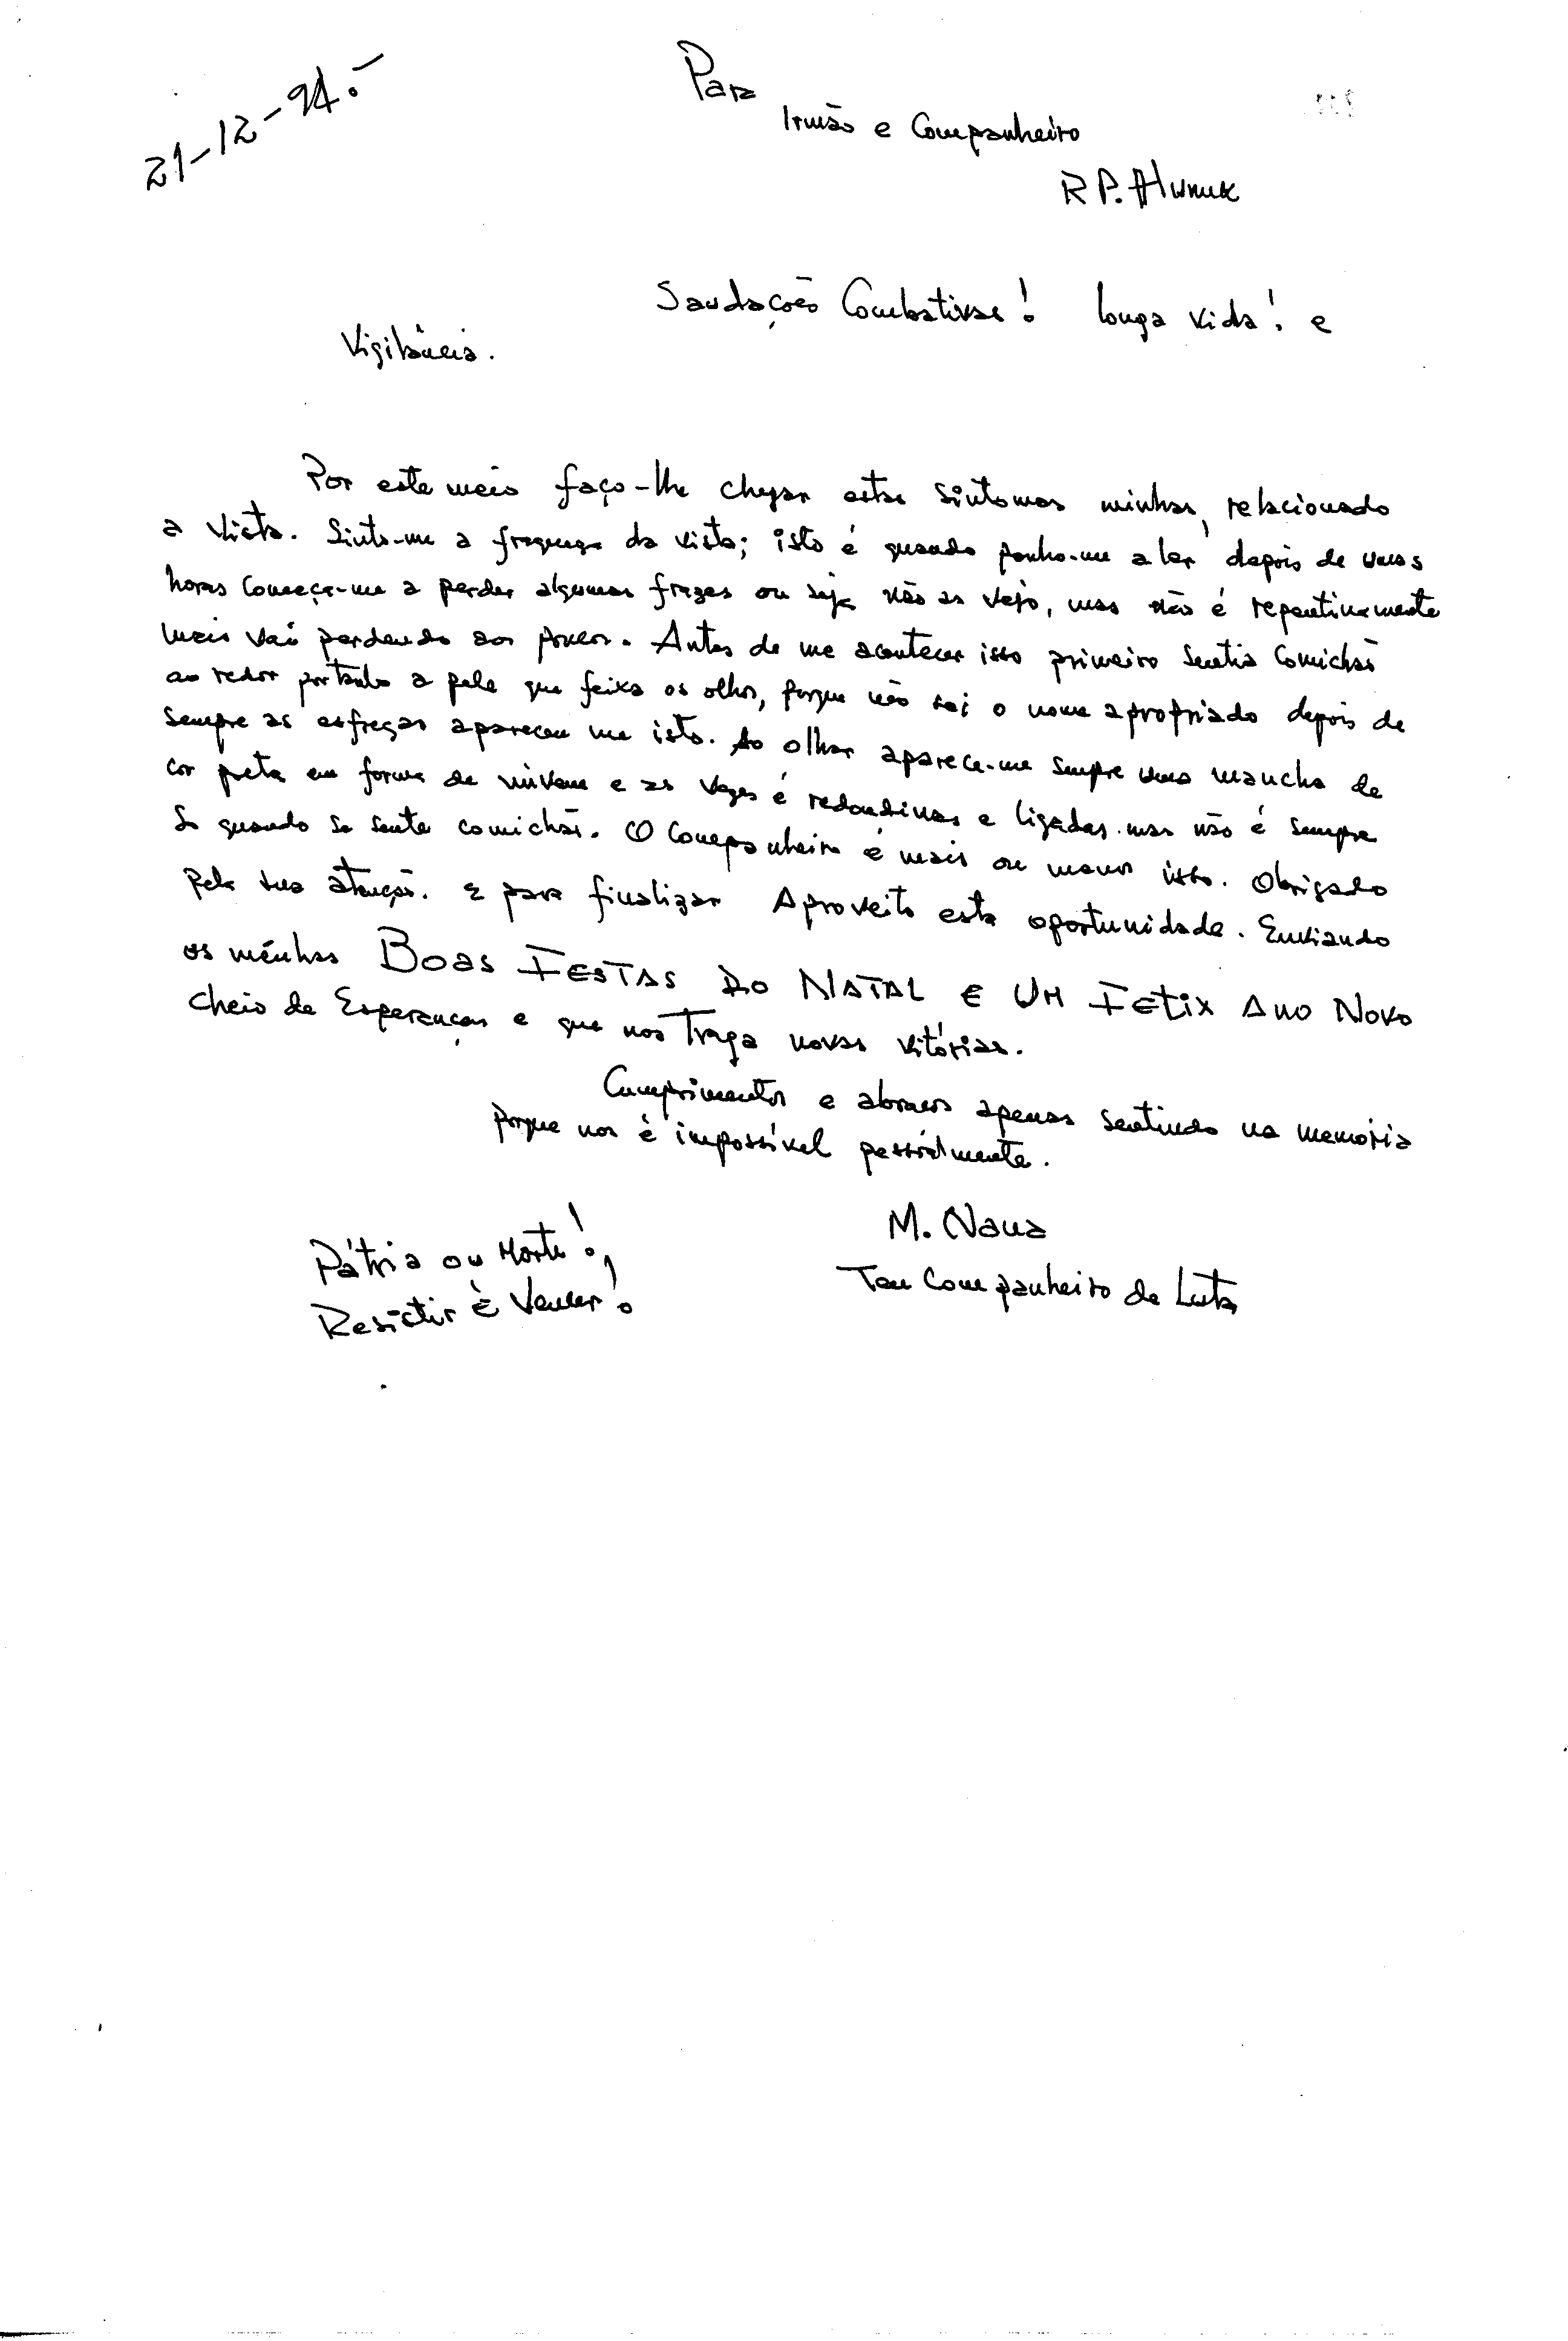 21-12-94.-
Para
Irmão e Companheiro
R P. Hunuk
Saudações Combativas! longa vida! e
Vigilância.
Por este meio faço-lhe chegar estas sintomas minhas, relacionado
a vista. Sinto-me a fraqueza da vista; isto é quando ponho-me a ler depois de umas
horas começa-me a perder algumas frazes ou seja não as vejo, mas não é repentinamente
mais vai perdendo aos poucos. Antes de me acontecer isso primeiro sentia comichão
ao redor portanto a pele que feixa os olhos, porque não sei o nome apropriado depois de
sempre as esfregar apareceu me isto. Ao olhar aparece-me sempre uma mancha de
cor preta em forma de nuvem e as vezes é redondinas e ligadas. mas não é sempre
So quando se sente comichão. O Companheiro é mais ou menos isto. Obrigado
pela tua atenção. E para finalizar Aproveito esta oportunidade. Enviando
os minhas BOAS FESTAS DO NATAL E UM FELIX ANO NOVO
cheio de Esperanças e que nos Traga novas vitórias.
Cumprimentos e abraços apenas sentindo na memória
porque nos é impossível pessoalmente.
M. Nana
Teu Companheiro de Luta
Pátria ou Morte!,
Resistir É Vencer!